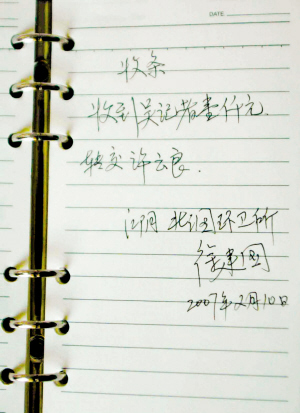 DATE
收条
收到吴记者壹仟元.
转交许云良.
江阴 北国环卫所
徐建国
2007年2月10日